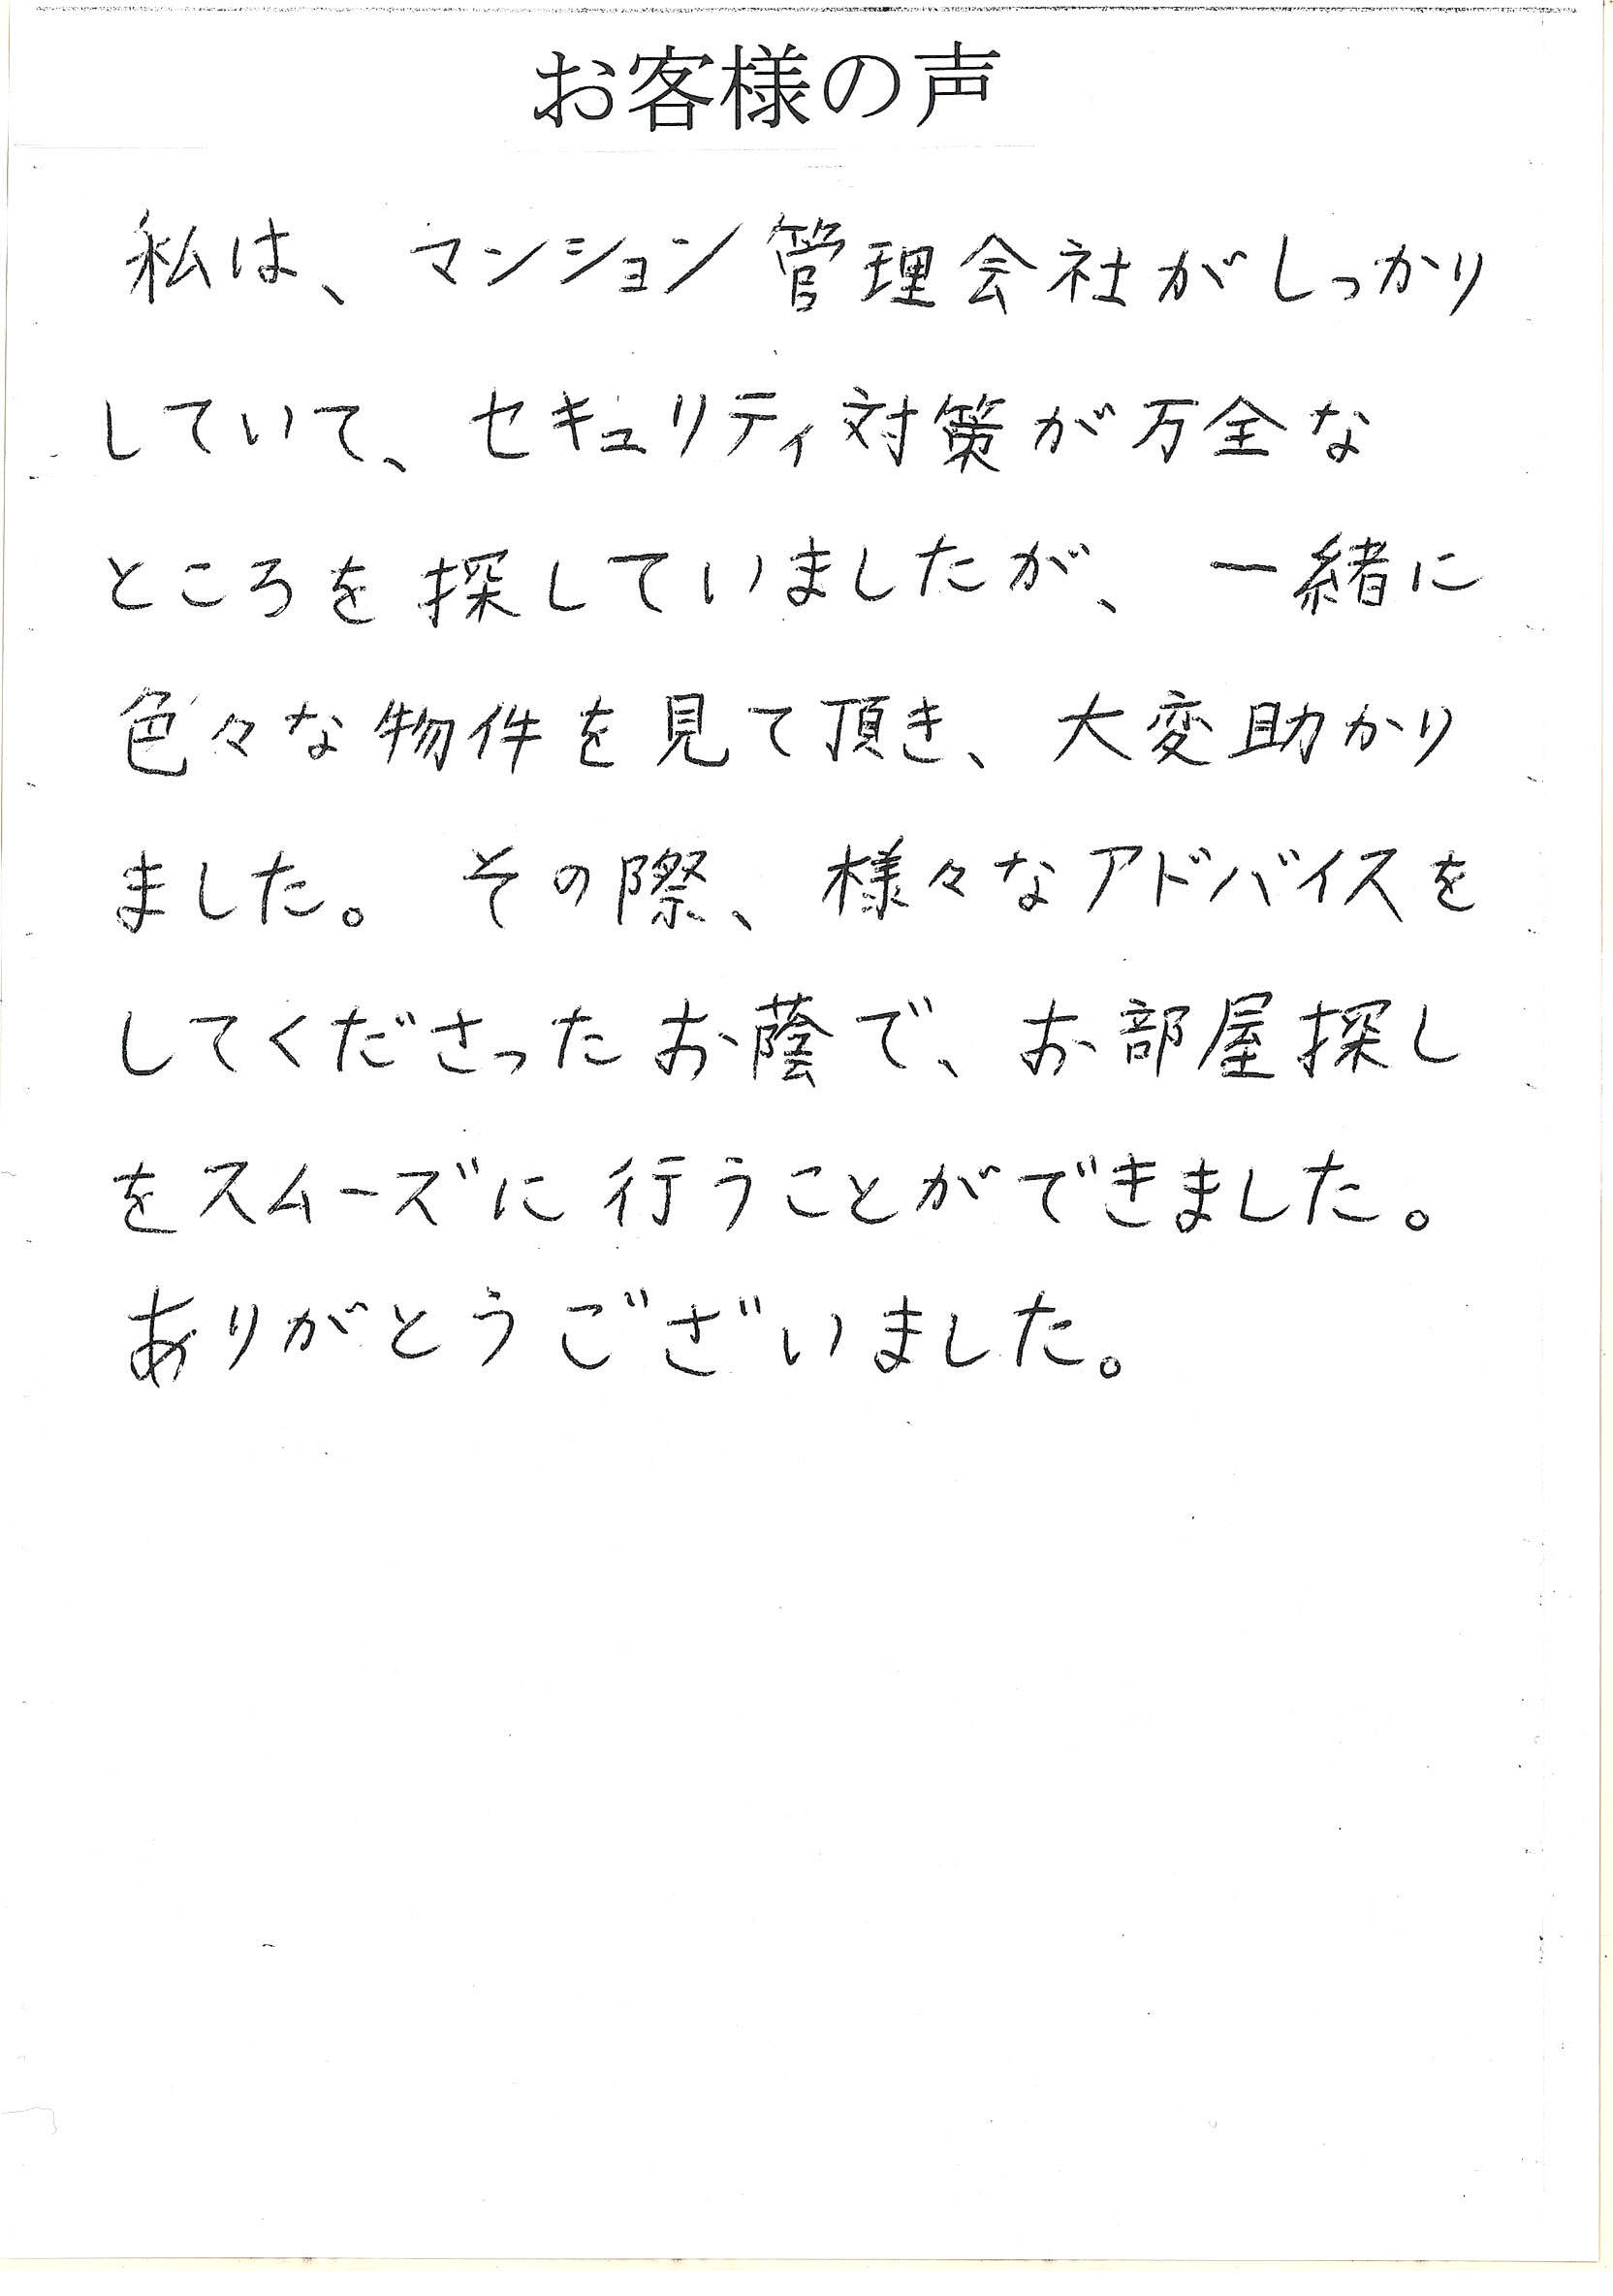 お客様の声
私は、マンション管理会社がしっかり
していて、セキュリティ対策が万全な
ところを探していましたが、一緒に
色々な物件を見て頂き、大変助かり
ました。その際、様々なアドバイスを
してくださったお蔭で、お部屋探し
をスムーズに行うことができました。
ありがとうございました。